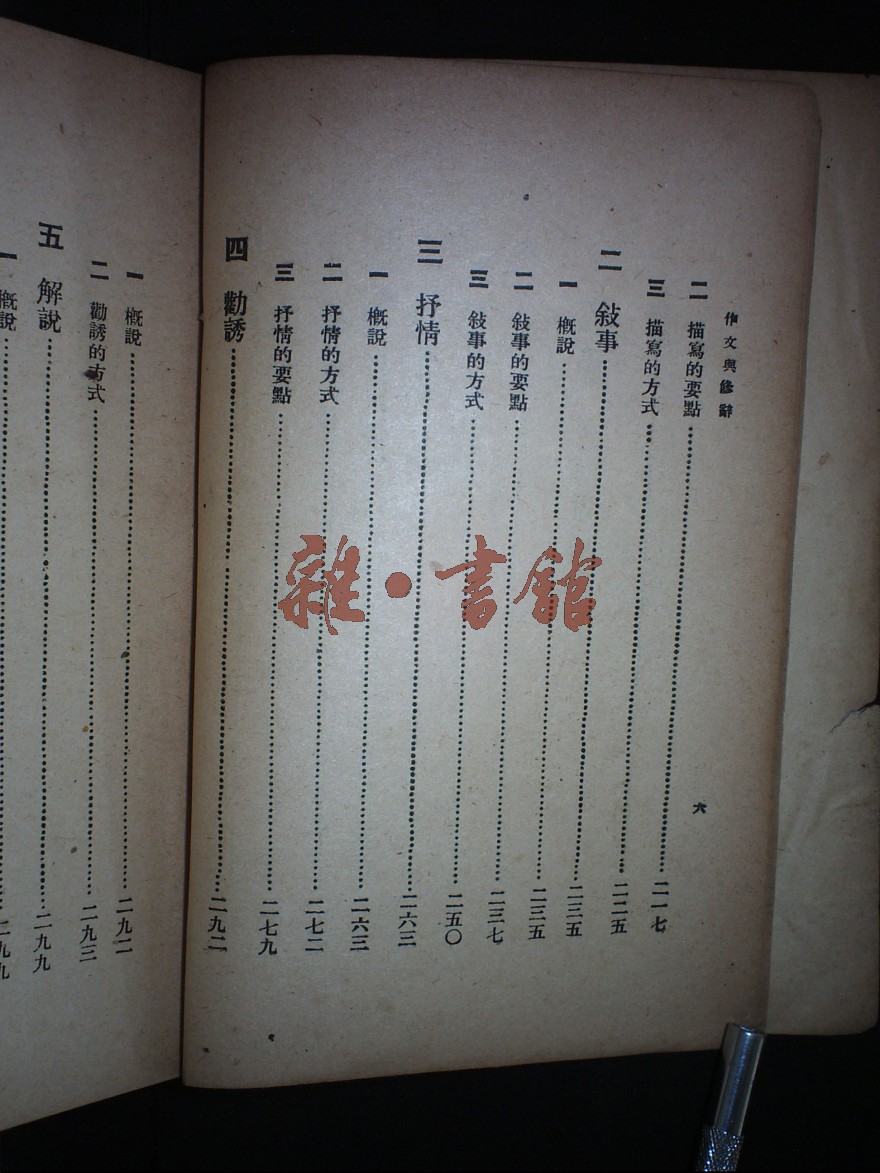 作文與修辭
六
二 描寫的要點……二一七
三 描寫的方式……二二五
二 敍事……二三五
一 概說……二三五
二 敍事的要點……二三七
三 敍事的方式……二五〇
三 抒情……二六三
一 概說……二六三
二 抒情的方式……二七二
三 抒情的要點……二七九
四 勸誘……二九二
一 概說……二九二
二 勸誘的方式……二九三
五 解說……二九九
一 概說……二九九
雜·書館